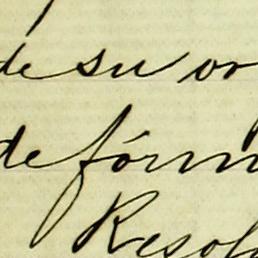 de su or
de fórm
Resol